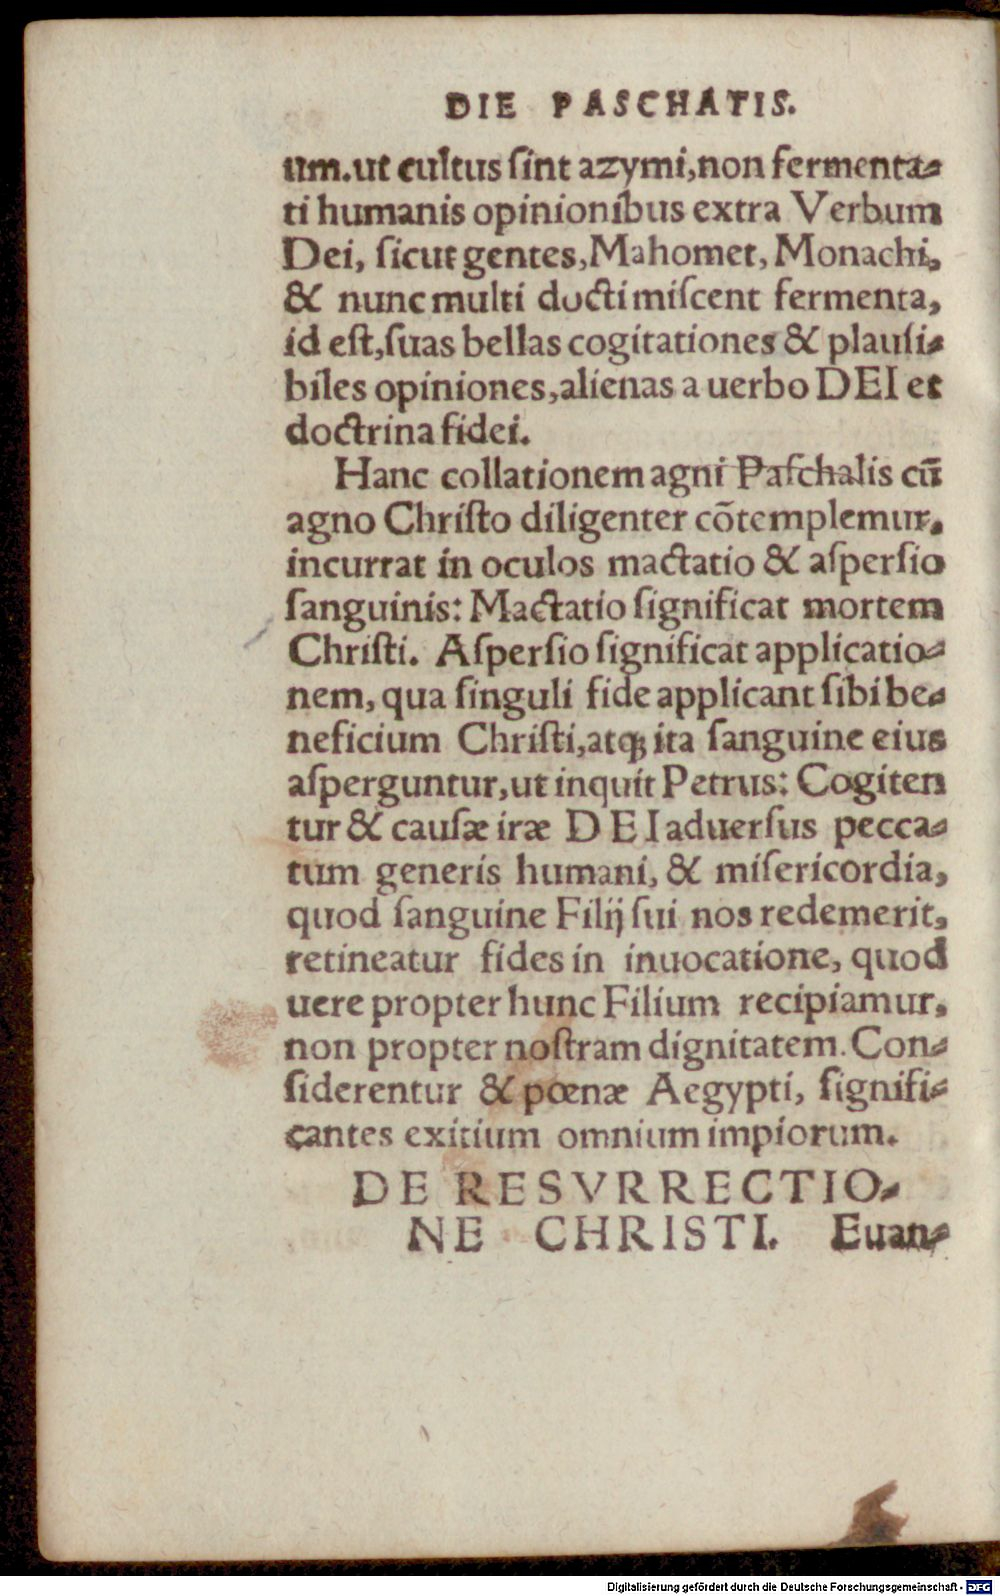 DIE PASCHATIS.
um. ut cultus ſint azymi, non fermenta-
ti humanis opinionibus extra Verbum
Dei, ſicut gentes, Mahomet, Monachi,
& nunc multi docti miſcent fermenta,
id eſt, ſuas bellas cogitationes & plauſi-
biles opiniones, alienas a uerbo DEI et
doctrina fidei.
Hanc collationem agni Paſchalis cū
agno Chriſto diligenter cōtemplemur,
incurrat in oculos mactatio & aſperſio
ſanguinis: Mactatio ſignificat mortem
Chriſti. Aſperſio ſignificat applicatio-
nem, qua ſinguli fide applicant ſibi be-
neficium Chriſti, atqꝫ ita ſanguine eius
aſperguntur, ut inquit Petrus: Cogiten
tur & cauſæ iræ DEI aduerſus pecca-
tum generis humani, & miſericordia,
quod ſanguine Filij ſui nos redemerit,
retineatur fides in inuocatione, quod
uere propter hunc Filium recipiamur,
non propter noſtram dignitatem. Con-
ſiderentur & pœnæ Aegypti, ſignifi-
cantes exitium omnium impiorum.
DE RESVRRECTIO-
NE CHRISTI. Euan-
Digitalisierung gefördert durch die Deutsche Forschungsgemeinschaft - DFG